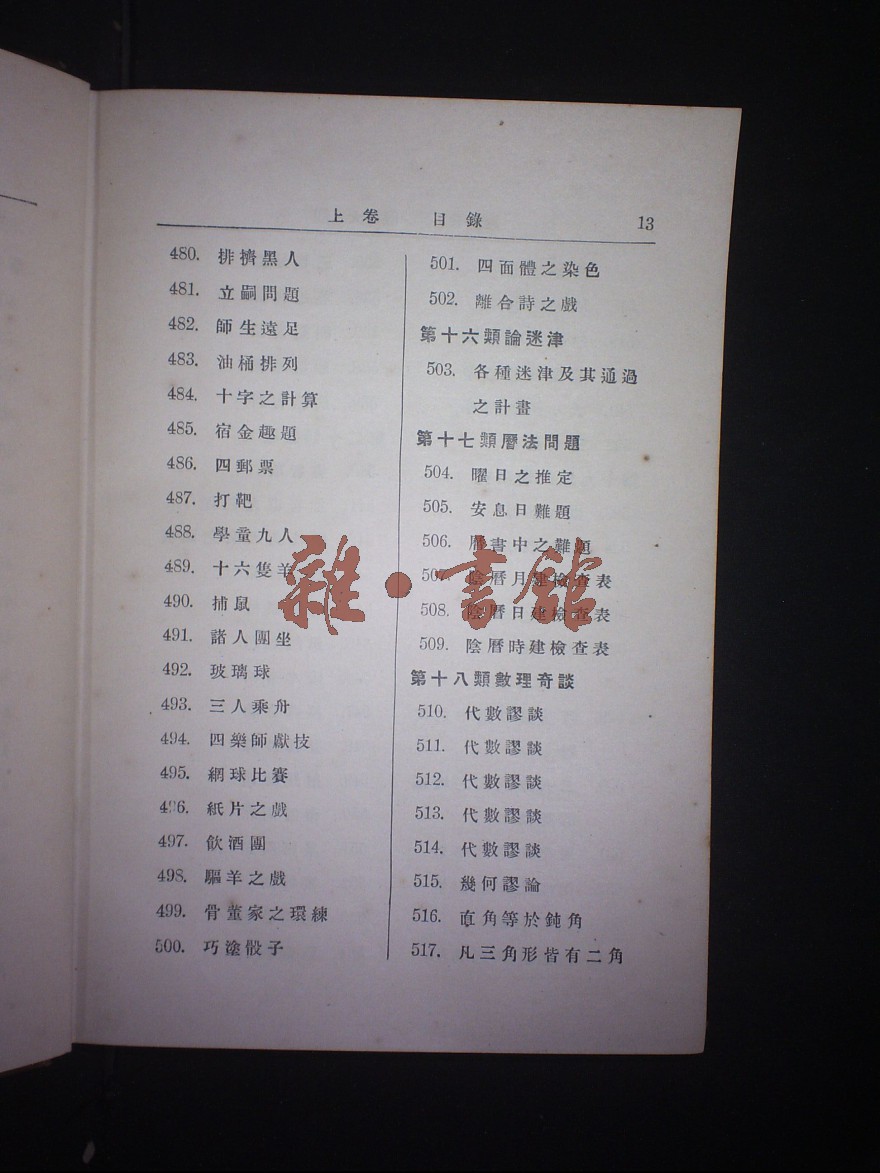 上卷 目錄 13
480. 排擠黑人
481. 立嗣問題
482. 師生遠足
483. 油桶排列
484. 十字之計算
485. 宿金趣題
486. 四郵票
487. 打靶
488. 學童九人
489. 十六隻羊
490. 捕鼠
491. 諸人團坐
492. 玻璃球
493. 三人乘舟
494. 四樂師獻技
495. 網球比賽
496. 紙片之戲
497. 飲酒團
498. 驅羊之戲
499. 骨董家之環練
500. 巧塗骰子
501. 四面體之染色
502. 離合詩之戲
第十六類論迷津
503. 各種迷津及其通過
之計畫
第十七類曆法問題
504. 曜日之推定
505. 安息日難題
506. 曆書中之難題
507. 陰曆月建檢查表
508. 陰曆日建檢查表
509. 陰曆時建檢查表
第十八類數理奇談
510. 代數謬談
511. 代數謬談
512. 代數謬談
513. 代數謬談
514. 代數謬談
515. 幾何謬論
516. 直角等於鈍角
517. 凡三角形皆有二角
雜·書館